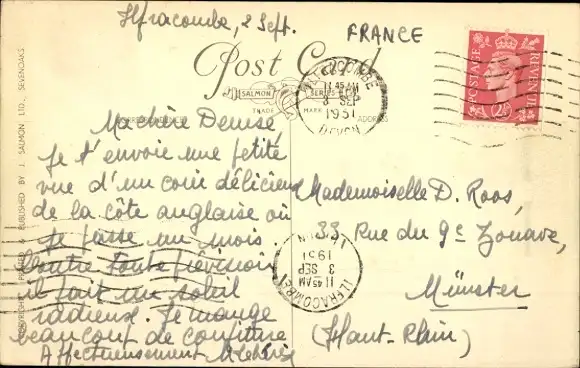 Ilfracombe, 2 Sept.
FRANCE
Post Card
SALMON SERIES
TRADE MARK
ADDRESS
POSTAGE REVENUE
ILFRACOMBE
11 45 AM
3 SEP
1951
DEVON
Ma chère Denise
Je t'envoie une petite
vue d'un coin délicieux
de la côte anglaise où
je passe un mois.
Contre toute prévision
il fait un soleil
radieux. Je mange
beaucoup de confiture
Affectueusement
Mademoiselle D. Roos,
33 Rue du 9e Zouave,
Münster
(Haut-Rhin)
ILFRACOMBE
11 45 AM
3 SEP
1951
PUBLISHED BY J. SALMON LTD., SEVENOAKS
COPYRIGHT